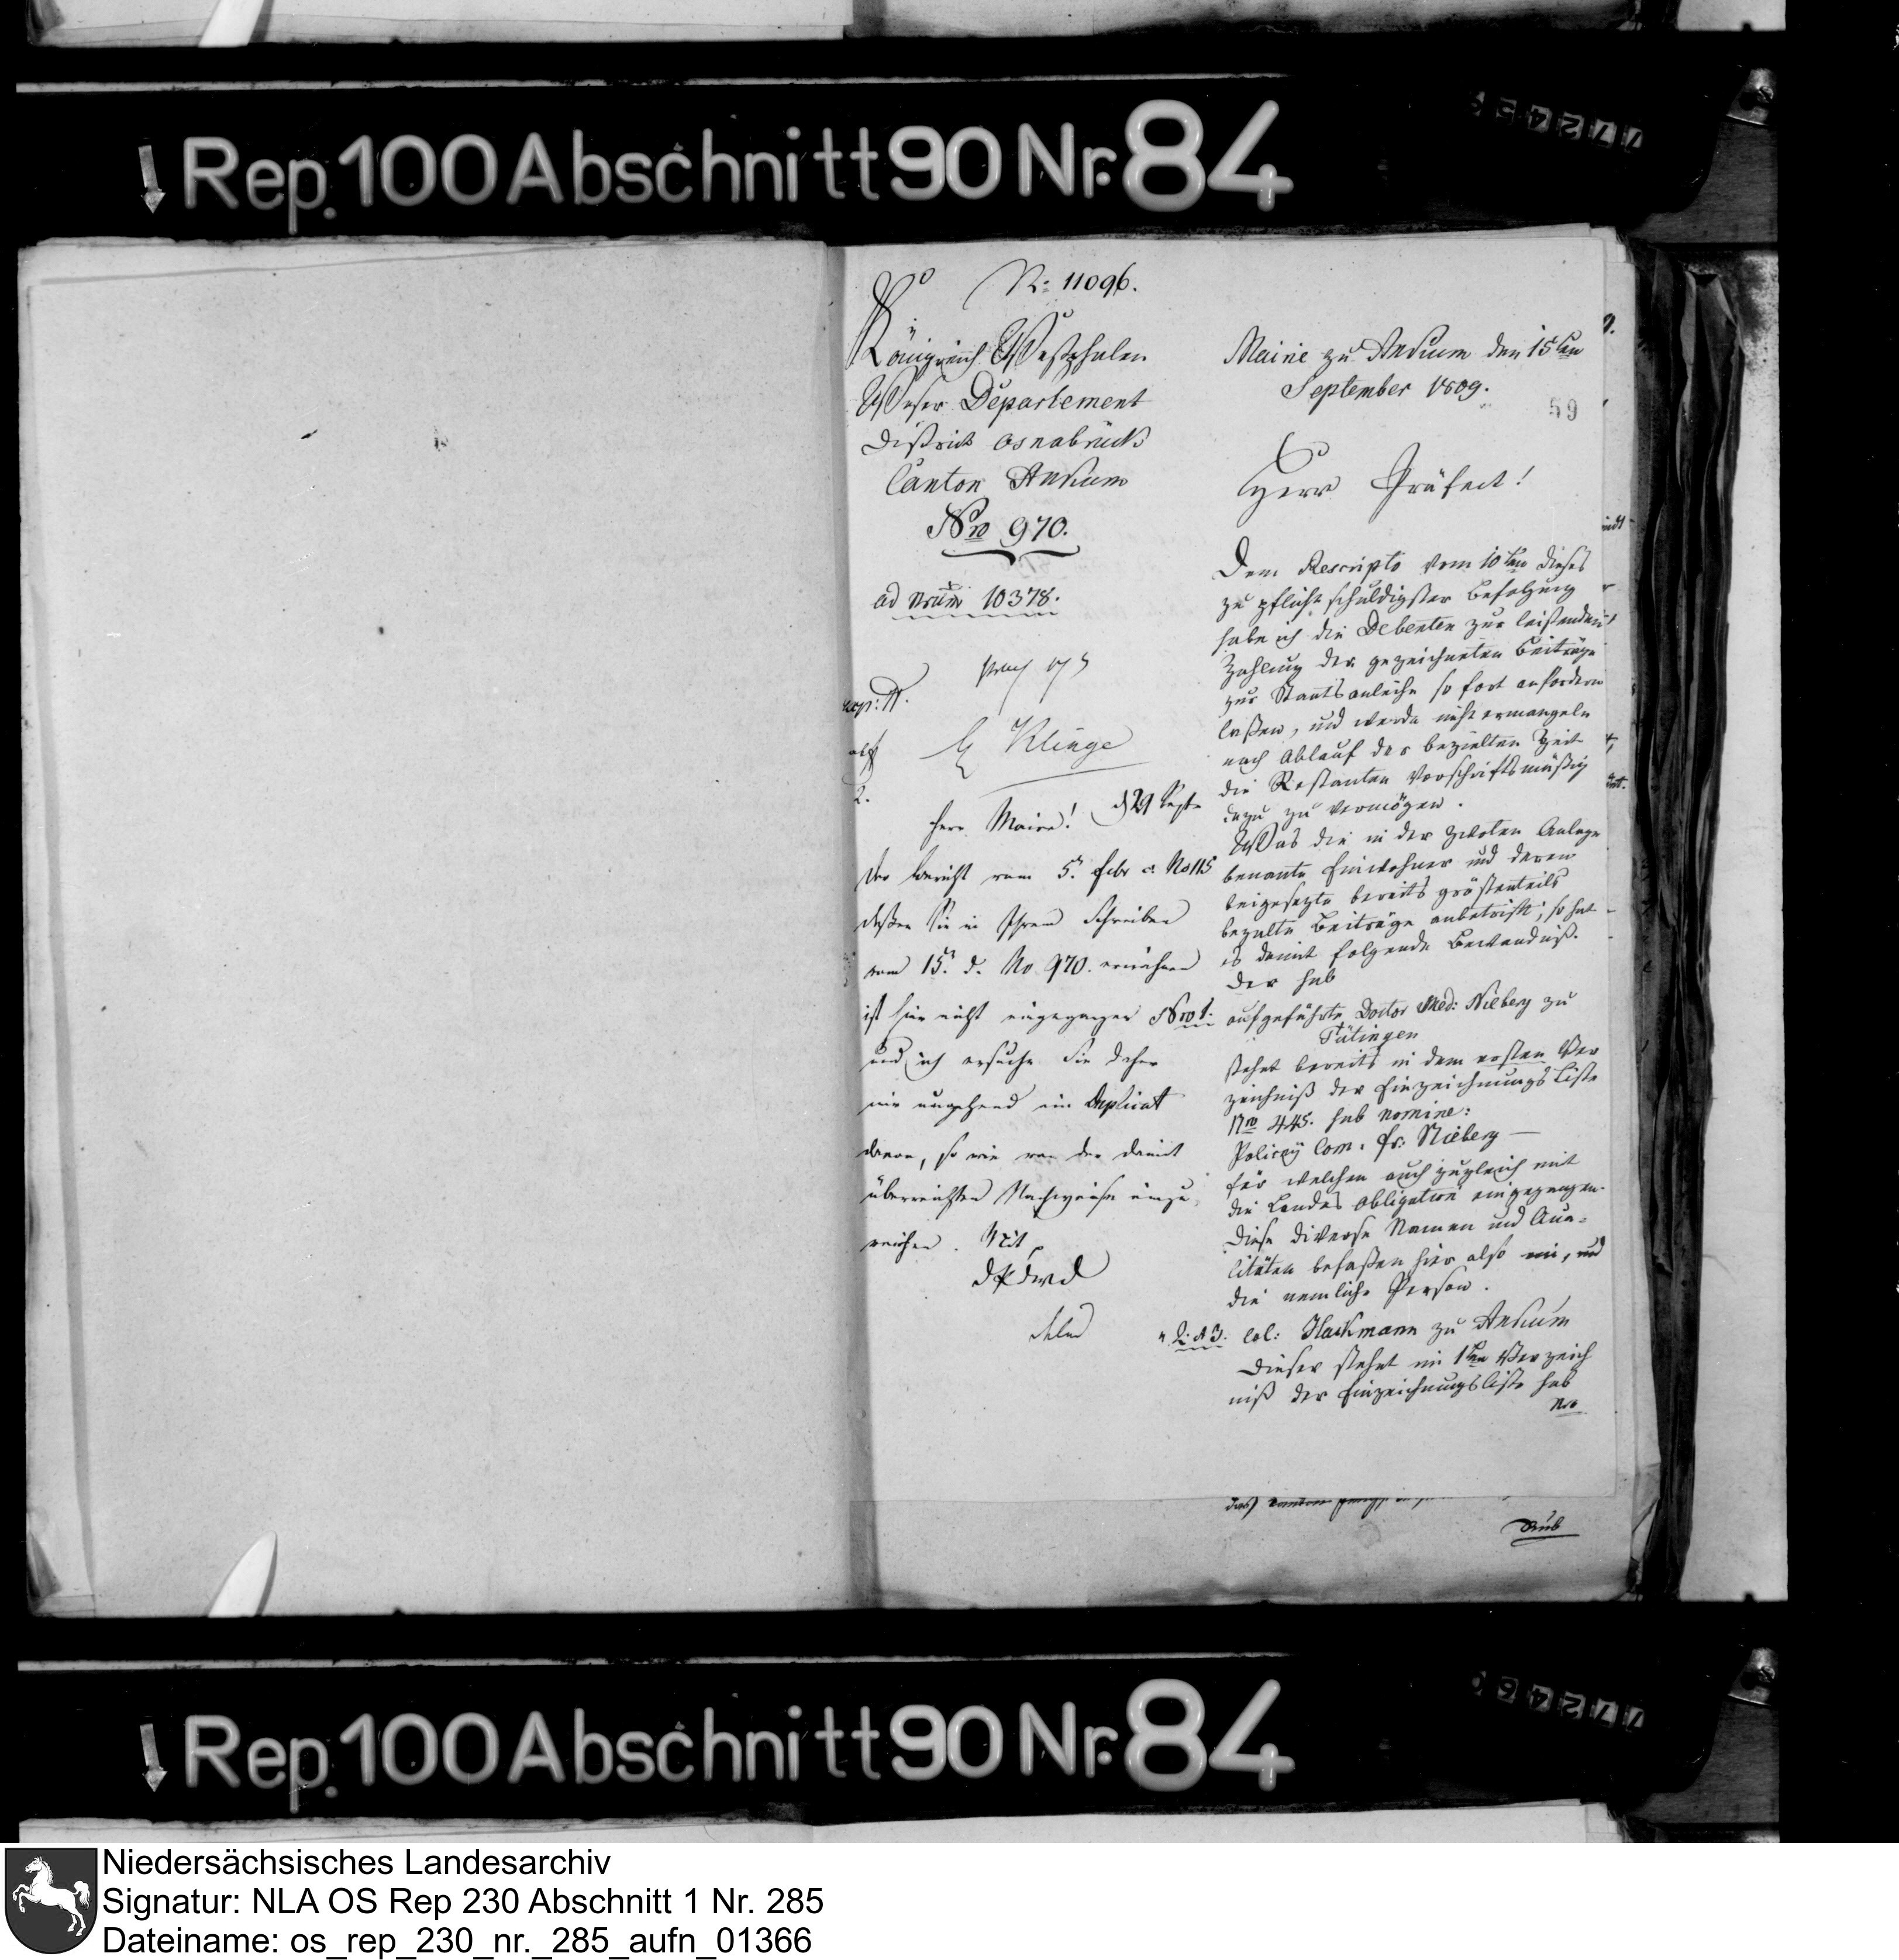 Rep. 100 Abschnitt 90 Nr. 84
N: 11096.
Königreich Westphalen
Weser Departement
District Osnabrück
Canton Ankum
Nro 970.
ad Nrum 10378.
Klinge
Herr Maire!
Der Bericht vom 5. Febr c. No 115
deßen Sie in Ihrem Schreiben
vom 15. d. No 970. erwähnen
ist hier nicht eingegangen
und ich ersuche Sie daher
mir umgehend ein Duplicat
davon, so wie von der damit
überreichten Nachweise einzu
reichen. Mit
Mairie zu Ankum den 15ten
September 1809.
59
Herr Präfect!
Dem Rescripto vom 10ten dieses
zu pflichtschuldigster Befolgung
habe ich die Debenten zur leistenden
Zahlung der gezeichneten Beiträge
zur Staatsanleihe so fort anfordern
laßen, und werde nicht ermangeln
nach Ablauf der bezielten Zeit
die Restanten vorschriftsmäßig
dazu zu vermögen.
Was die in der zwoten Anlage
benante Einwohner und deren
beigesezte bereits größtenteils
bezalte Beiträge anbetrift, so hat
es damit folgende Bewandniß.
Der sub
Nro 1. aufgeführte Doctor Med: Nieberg zu
Tütingen
stehet bereits in dem ersten Ver
zeichniß der Einzeichnungs Liste
Nro 445. sub nomine:
Policey Com. Fr: Nieberg —
für welchen auch zugleich mit
die Landes Obligation eingegangen.
Diese diverse Namen und Qua-
litäten befaßen hier also ein, und
die nemliche Person.
" 2. & 3. Col: Hackmann zu Ankum
Dieser stehet im 1ten Verzeich
niß der Einzeichnungsliste sub
Nro
Rep. 100 Abschnitt 90 Nr. 84
Niedersächsisches Landesarchiv
Signatur: NLA OS Rep 230 Abschnitt 1 Nr. 285
Dateiname: os_rep_230_nr._285_aufn_01366